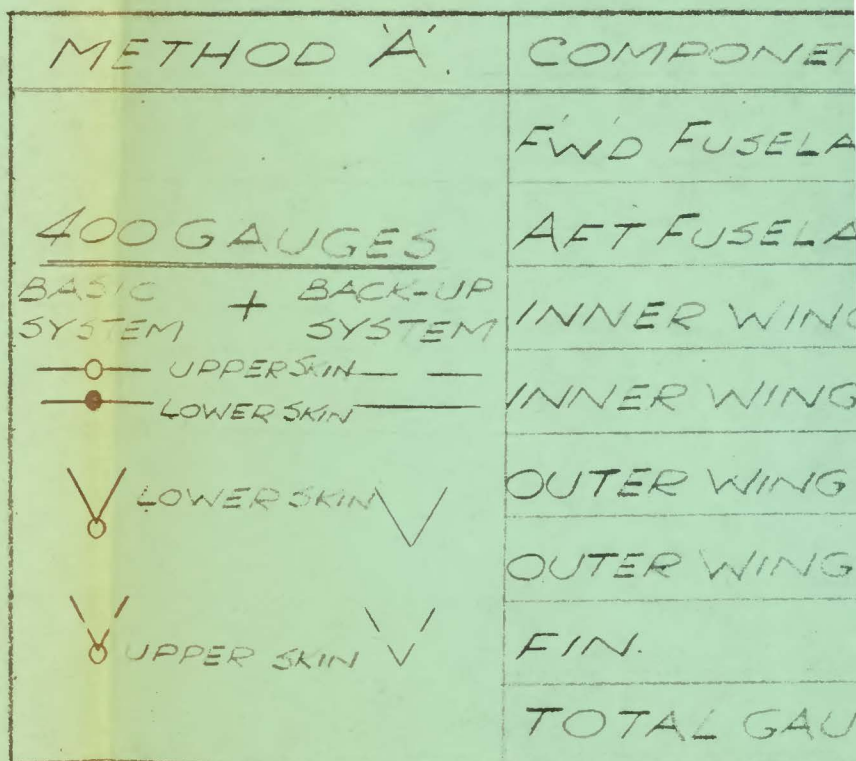 METHOD 'A'.
400 GAUGES
BASIC SYSTEM + BACK-UP SYSTEM
UPPER SKIN
LOWER SKIN
LOWER SKIN
UPPER SKIN
COMPONEN
F'W'D FUSELA
AFT FUSELA
INNER WING
INNER WING
OUTER WING
OUTER WING
FIN.
TOTAL GAU